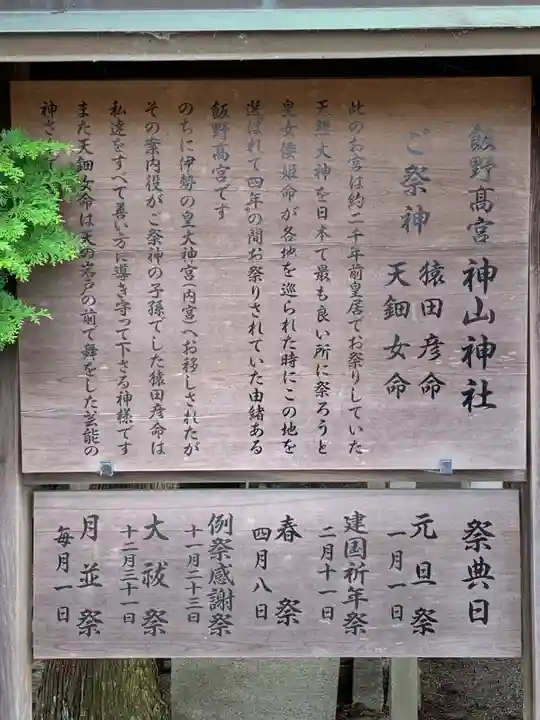 飯野髙宮 神山神社
ご祭神 猿田彦命
天鈿女命
此のお宮は約二千年前皇居でお祭りしていた
天照大神を日本で最も良い所に祭ろうと
皇女倭姫命が各地を巡られた時にこの地を
選ばれて四年の間お祭りされていた由緒ある
飯野髙宮です
のちに伊勢の皇大神宮(内宮)へお移しされたが
その案内役がご祭神の子孫でした猿田彦命は
私達をすべて善い方に導き守って下さる神様です
また天鈿女命は天の岩戸の前で舞をした芸能の
神さ
祭典日
元旦祭
一月一日
建国祈年祭
二月十一日
春祭
四月八日
例祭感謝祭
十一月二十三日
大祓祭
十二月三十一日
月並祭
毎月一日